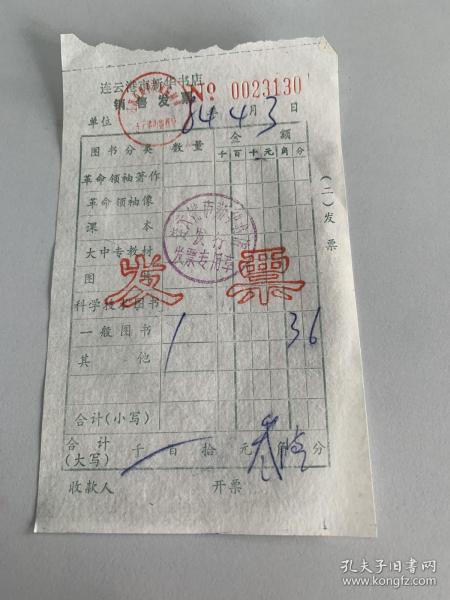 连云港市新华书店
销售发票 No 0023130
单位 84年4月3日
图书分类 数量 金额
千百十元角分
革命领袖著作
革命领袖像
课本
大中专教材
图
科学技术图书
一般图书 1 36
其他
合计(小写)
合计(大写) 千百拾元角分
收款人 开票
(二)发票
发票
发行
发票专用章
孔夫子旧书网
www.kongfz.com